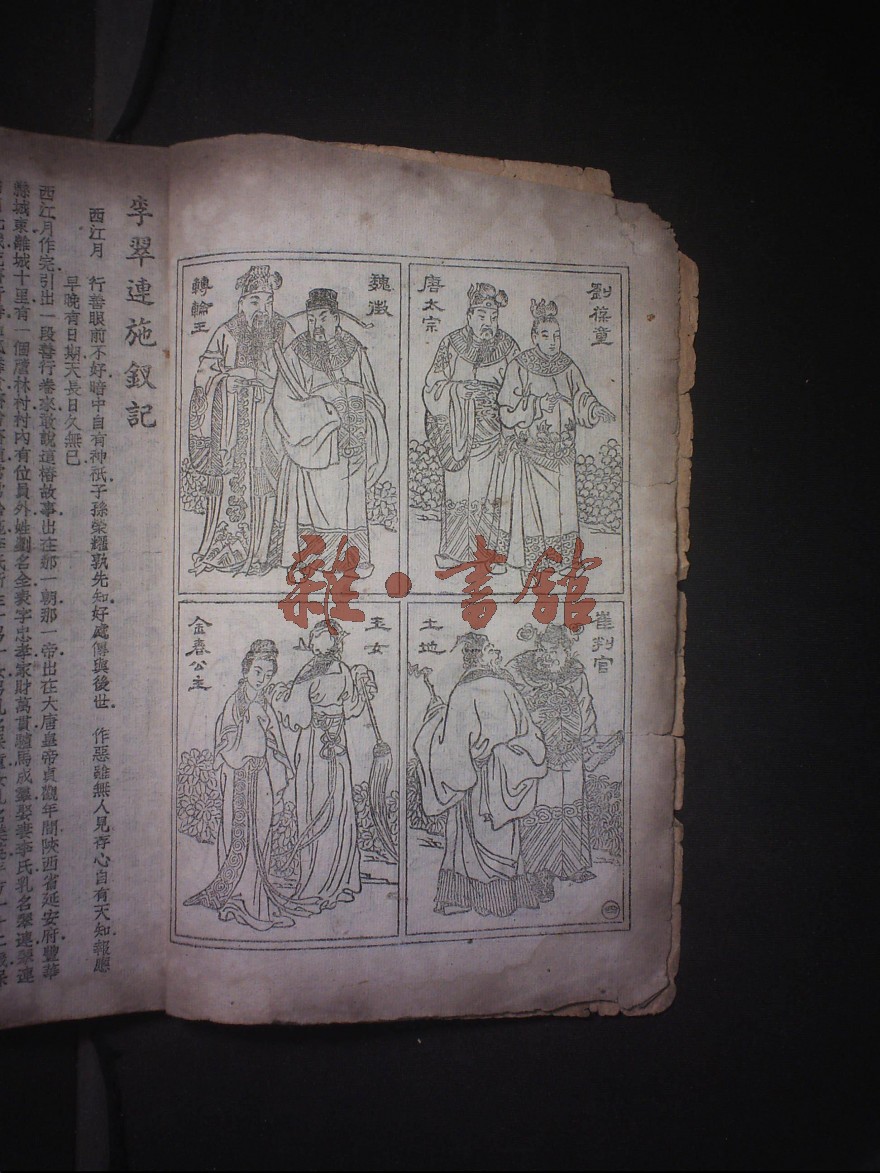 劉葆童
唐太宗
魏徵
轉輪王
崔判官
土地
玉女
金春公主
四
雜·書館
李翠連施釵記
西江月　行善眼前不好暗中自有神祇子孫榮耀孰先知好處傳與後世　作惡雖無人見存心自有天知報應
早晚有日期天長日久無已
西江月作完引出一段善行卷來敢說這樁故事出在那一朝那一帝出在大唐皇帝貞觀年間陝西省延安府豐華
縣城東離城十里有一個盧林村村內有位員外姓劉名全表字忠孝家財萬貫騾馬成羣娶妻李氏乳名翠連翠連